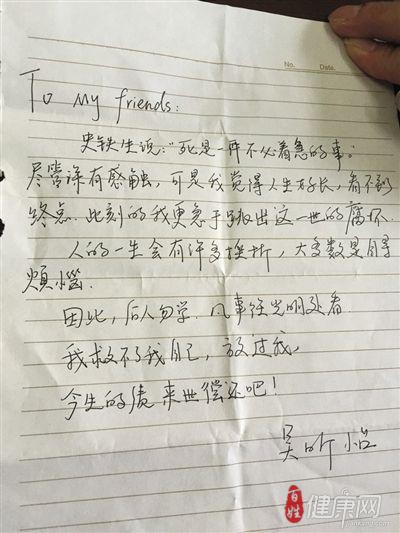 No. Date.
To My friends:
史铁生说:"死是一件不必着急的事。"
尽管深有感触,可是我觉得人生好长,看不到
终点.此刻的我更急于跳出这一世的腐坏.
人的一生会有许多挫折,大多数是自寻
煩惱.
因此,后人勿学.凡事往光明处看.
我救不了我自己,放过我,
今生的债来世偿还吧!
吴昕怡
百姓 健康网
jiankang.com